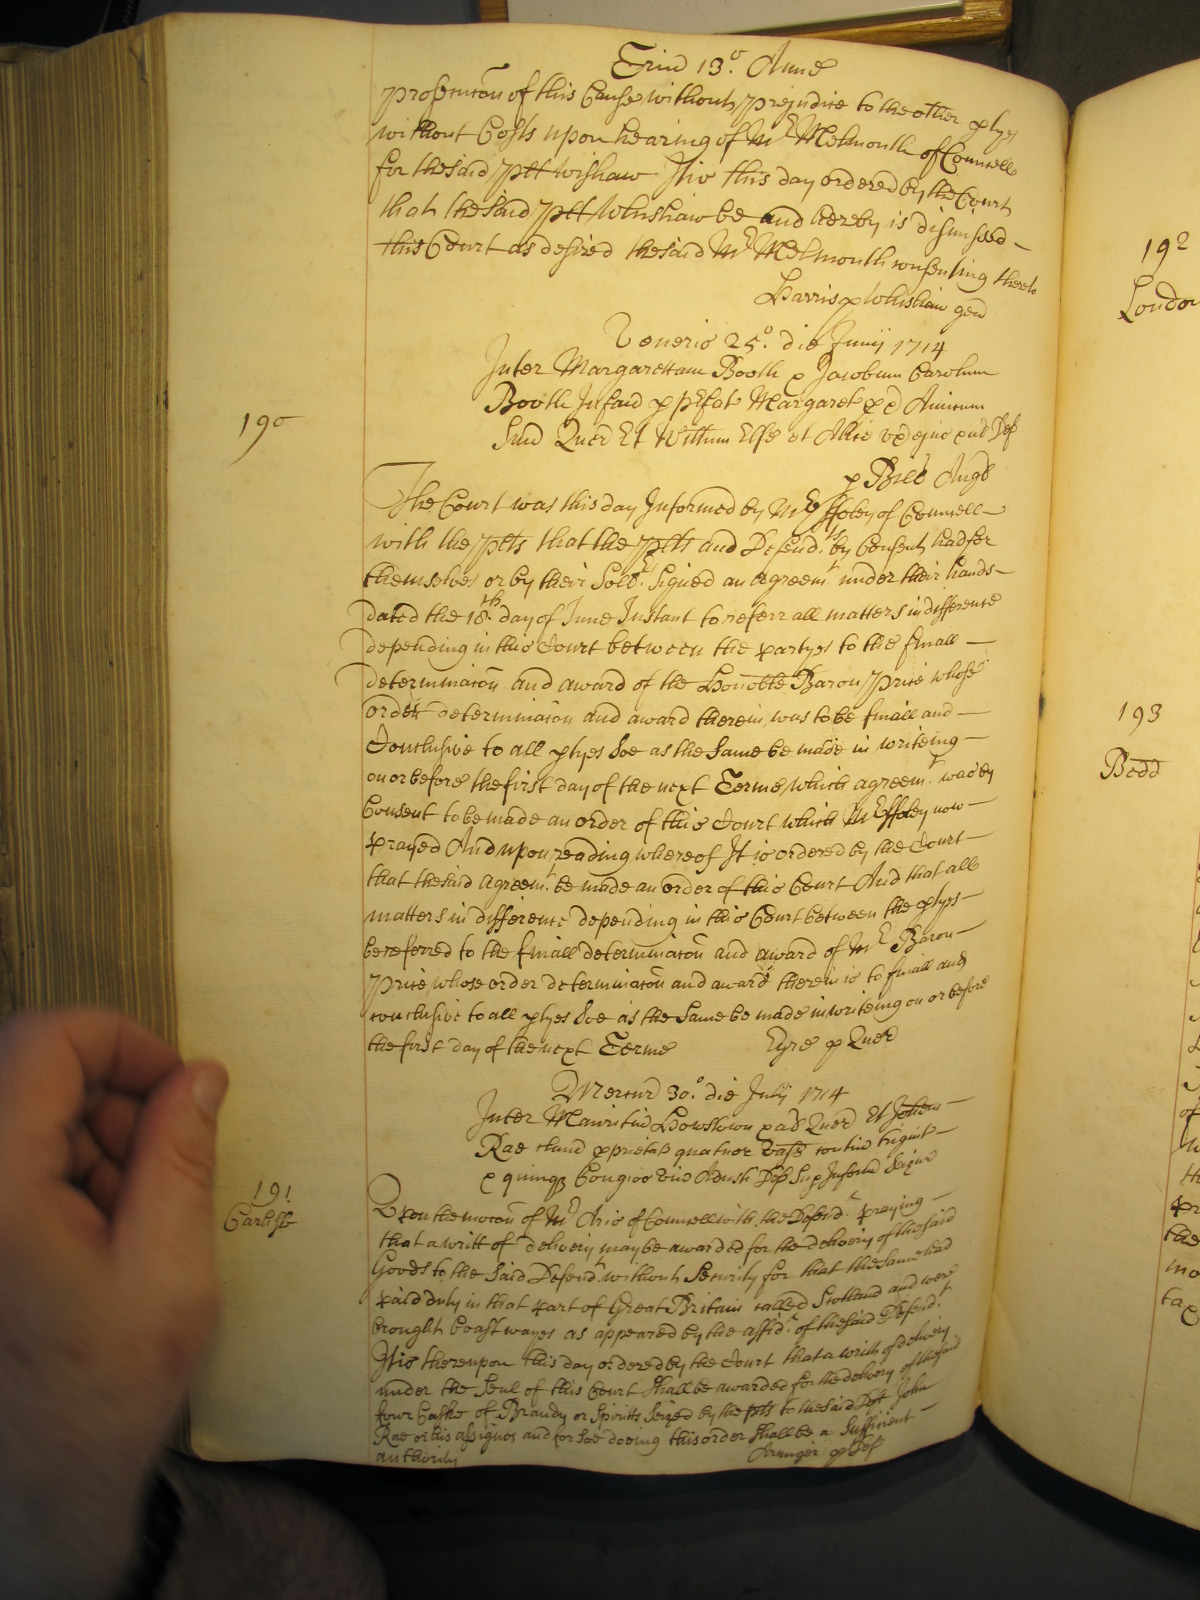 Trin 13o. Anne
prosecucon of this Cause without prejudice to the other ptyes
without Costs upon hearing of Mr Melmouth of Councell
for the said Plt Wishaw It is this day ordered by the Court
that the said Plt Whishaw be and hereby is dismissed
this Court as desired the said Mr Melmouth consenting thereto
Harris p Whishaw gen
Veneris 25o. die Junij 1714
190
Inter Margarettam Booth & Jacobum Carolum
Booth Infand p prefat Margaret
Quer Et Willum Else et Def
p Bill Angl
The Court was this day Informed by Mr ffoley of Councell
with the Plts that the Plts and Defendts by Consent had for
themselves or by their Sollrs Signed an agreemt under their hands
dated the 18th day of June Instant to referr all matters in difference
depending in this Court between the partyes to the finall
determinacon and award of the Honoble Baron Price whose
order determinacon and award therein was to be finall and
Conclusive to all ptyes Soe as the Same be made in writeing
on or before the first day of the next Terme which agreemt was by
Consent to be made an order of this Court which Mr ffoley now
prayed And upon reading whereof It is ordered by the Court
that the said agreemt be made an order of this Court And that all
matters in difference depending in this Court between the ptyes
be referred to the finall determinacon and award of Mr Baron
Price whose order determinacon and award therein is to finall and
conclusive to all ptyes Soe as the Same be made in writeing on or before
the first day of the next Terme Eyre p Quer
Mercur 30o. die Julij 1714
191
Carlisle
Inter Mauritiu Howstown Quer Et Johem
Rae clamd pprietat quatuor vasis contin trigint
& quinq Congios Def Sup Inform Seizur
Upon the mocon of Mr of Councell with the Defendt praying
that a writt of delivery may be awarded for the delivery of the said
Goods to the said Defendt without Security for that the same had
paid duly in that part of Great Britain called Scotland and were
brought Coastwayes as appeared by the affidt of the said Defendt
It is thereupon this day ordered by the Court that a writt of delivery
under the Seal of this Court Shall be awarded for the delivery of the said
four Casks of Brandy or Spiritts Seized by the plts to the said Deft John
Rae or his assignes and for soe doeing this order shall be a Sufficient
authority p Def
192
London
193
Bedd